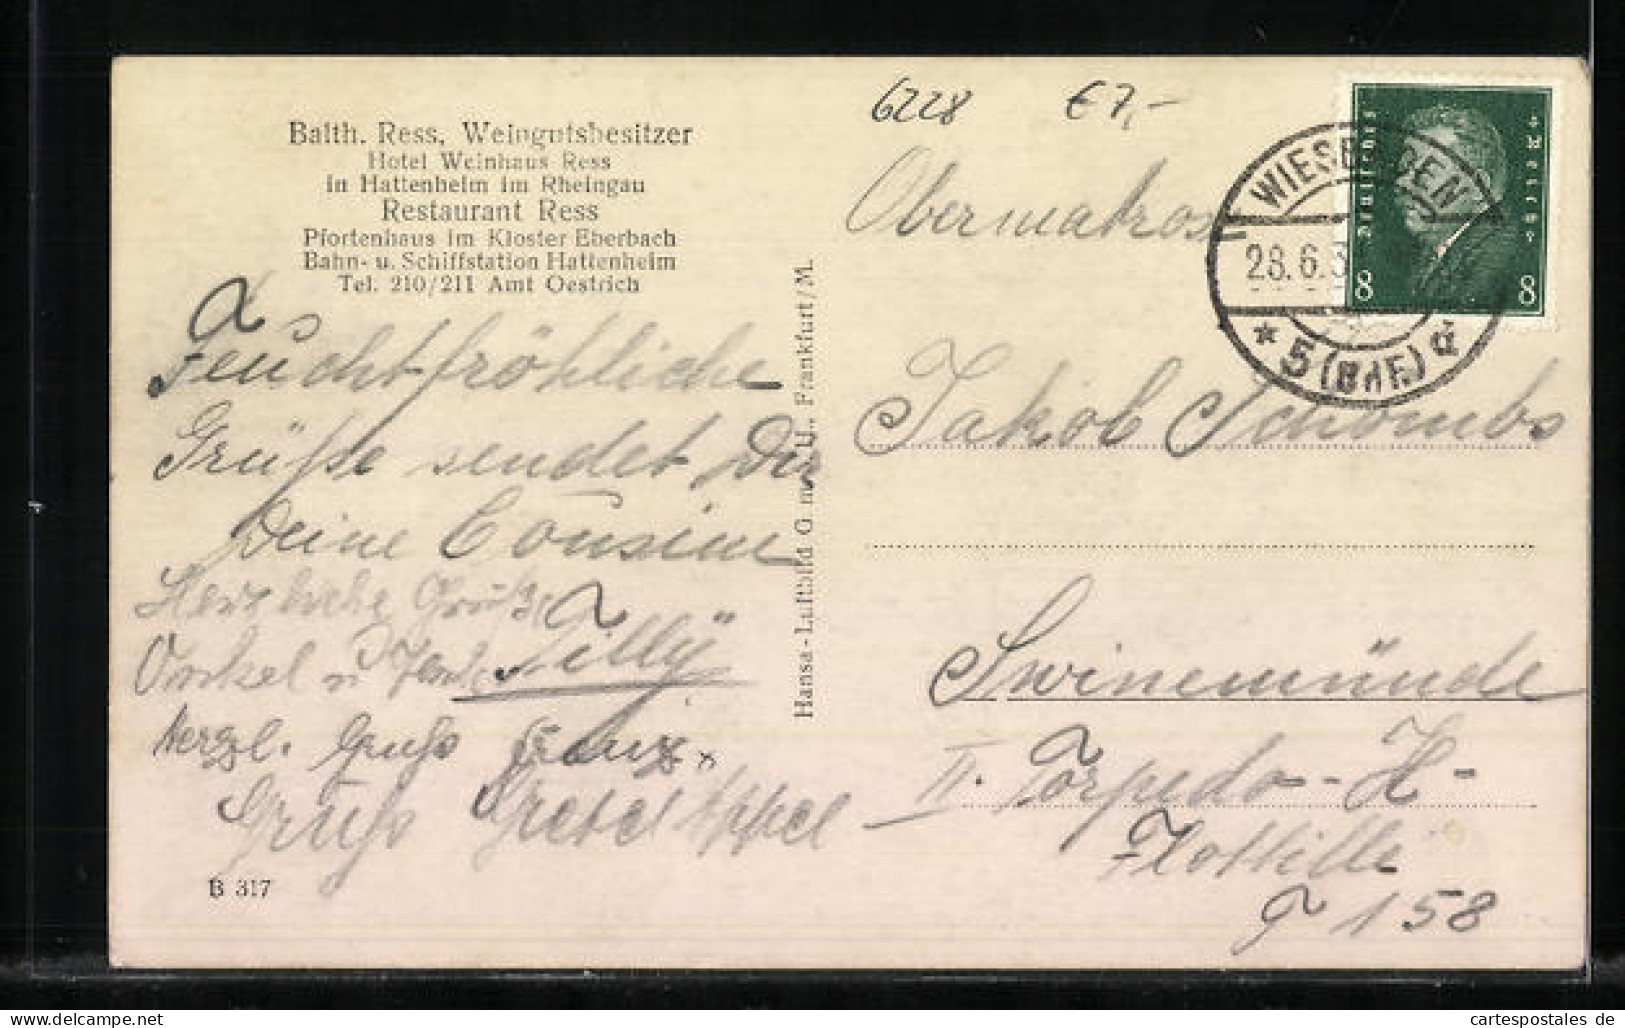 Balth. Ress, Weingutsbesitzer
Hotel Weinhaus Ress
in Hattenheim im Rheingau
Restaurant Ress
Pfortenhaus im Kloster Eberbach
Bahn- u. Schiffstation Hattenheim
Tel. 210/211 Amt Oestrich
Feuchtfröhliche
Grüße sendet Dir
Deine Cousine
Tilly
Herzliche Grüße
Onkel u Tante
Herzl. Gruß Franz.
Gruß Gretel Appel
B 317
Hansa-Luftbild G.m.b.U., Frankfurt/M.
6228 €7,-
WIESBADEN
28.6.3
* 5 (Bhf.) d
Deutsches Reich
8 8
Obermatrose
Jakob Schömbs
Swinemünde
II. Torpedo-H-
Flottille
T 158
cartespostales de